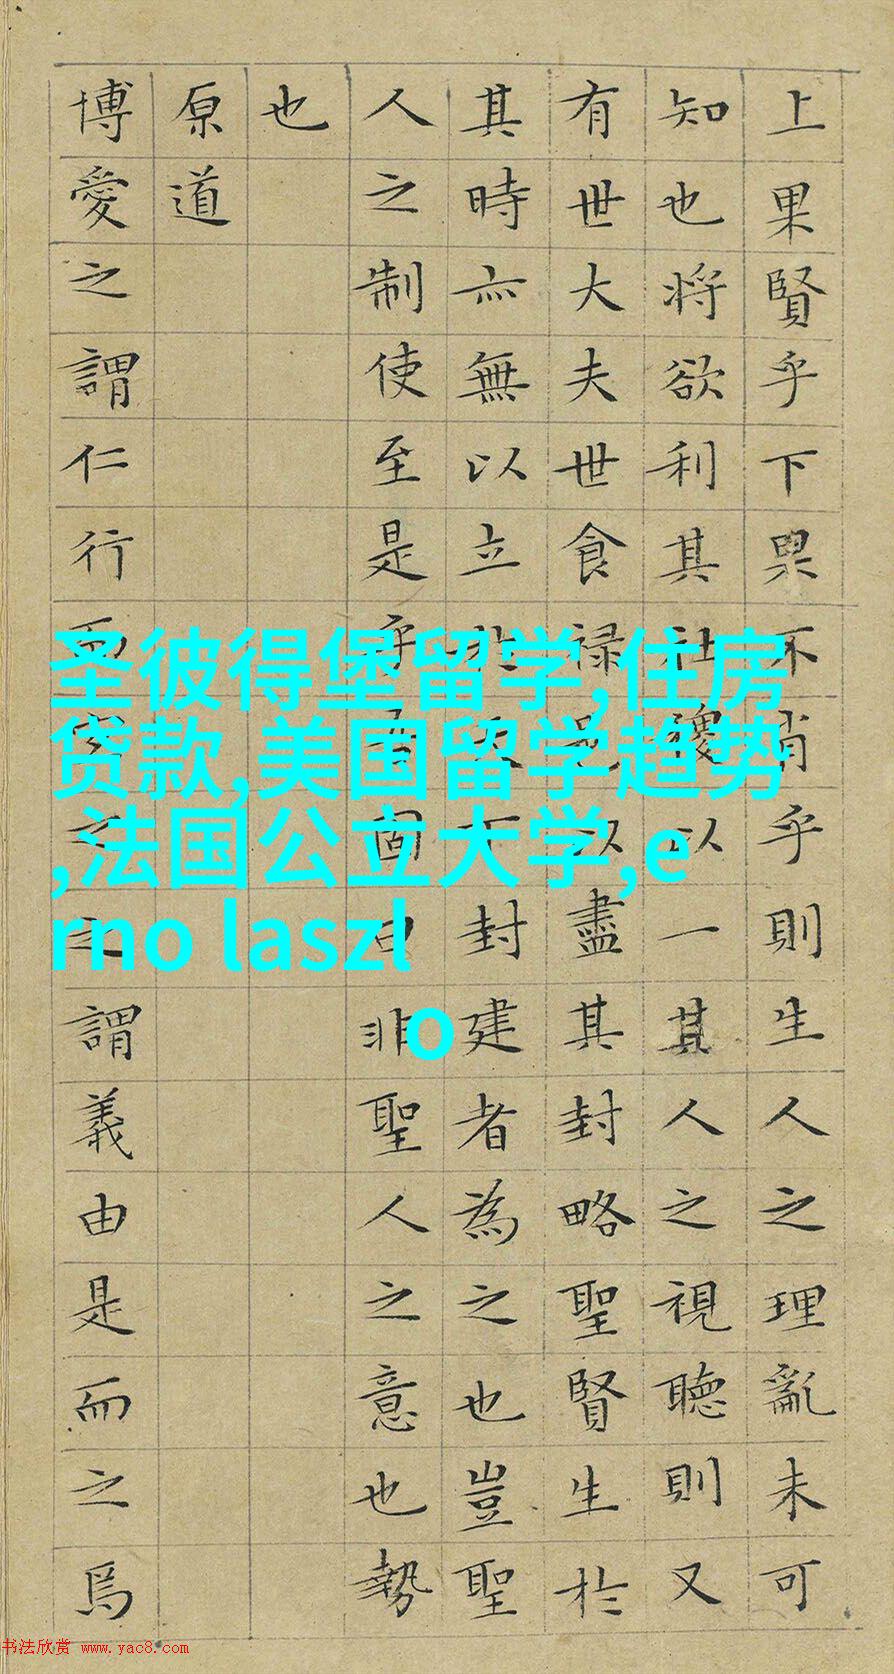 上果賢乎下果不肖乎則生人之理亂未可
知也将欲利其社稷以一其人之視聴則又
有世大夫世食禄邑以盡其封略聖賢生於
其時亦無以立於天下封建者為之也豈聖
人之制使至是乎吾固曰非聖人之意也勢
也
原道
博愛之謂仁行而宜之之謂義由是而之焉
圣彼得堡留学,住房
贷款,美国留学趋势
,法国公立大学,e
rno laszl
o
书法欣赏 www.yac8.com